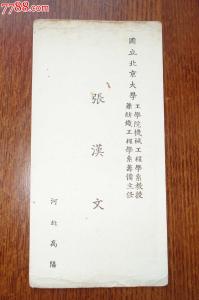 國立北京大學
工學院機械工程學系教授
兼紡織工程學系籌備主任
張漢文
河北高陽
7788.com